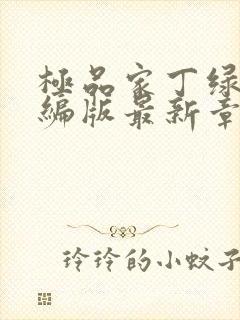 極品家丁绿
編版最新章
玲玲的小蚊子